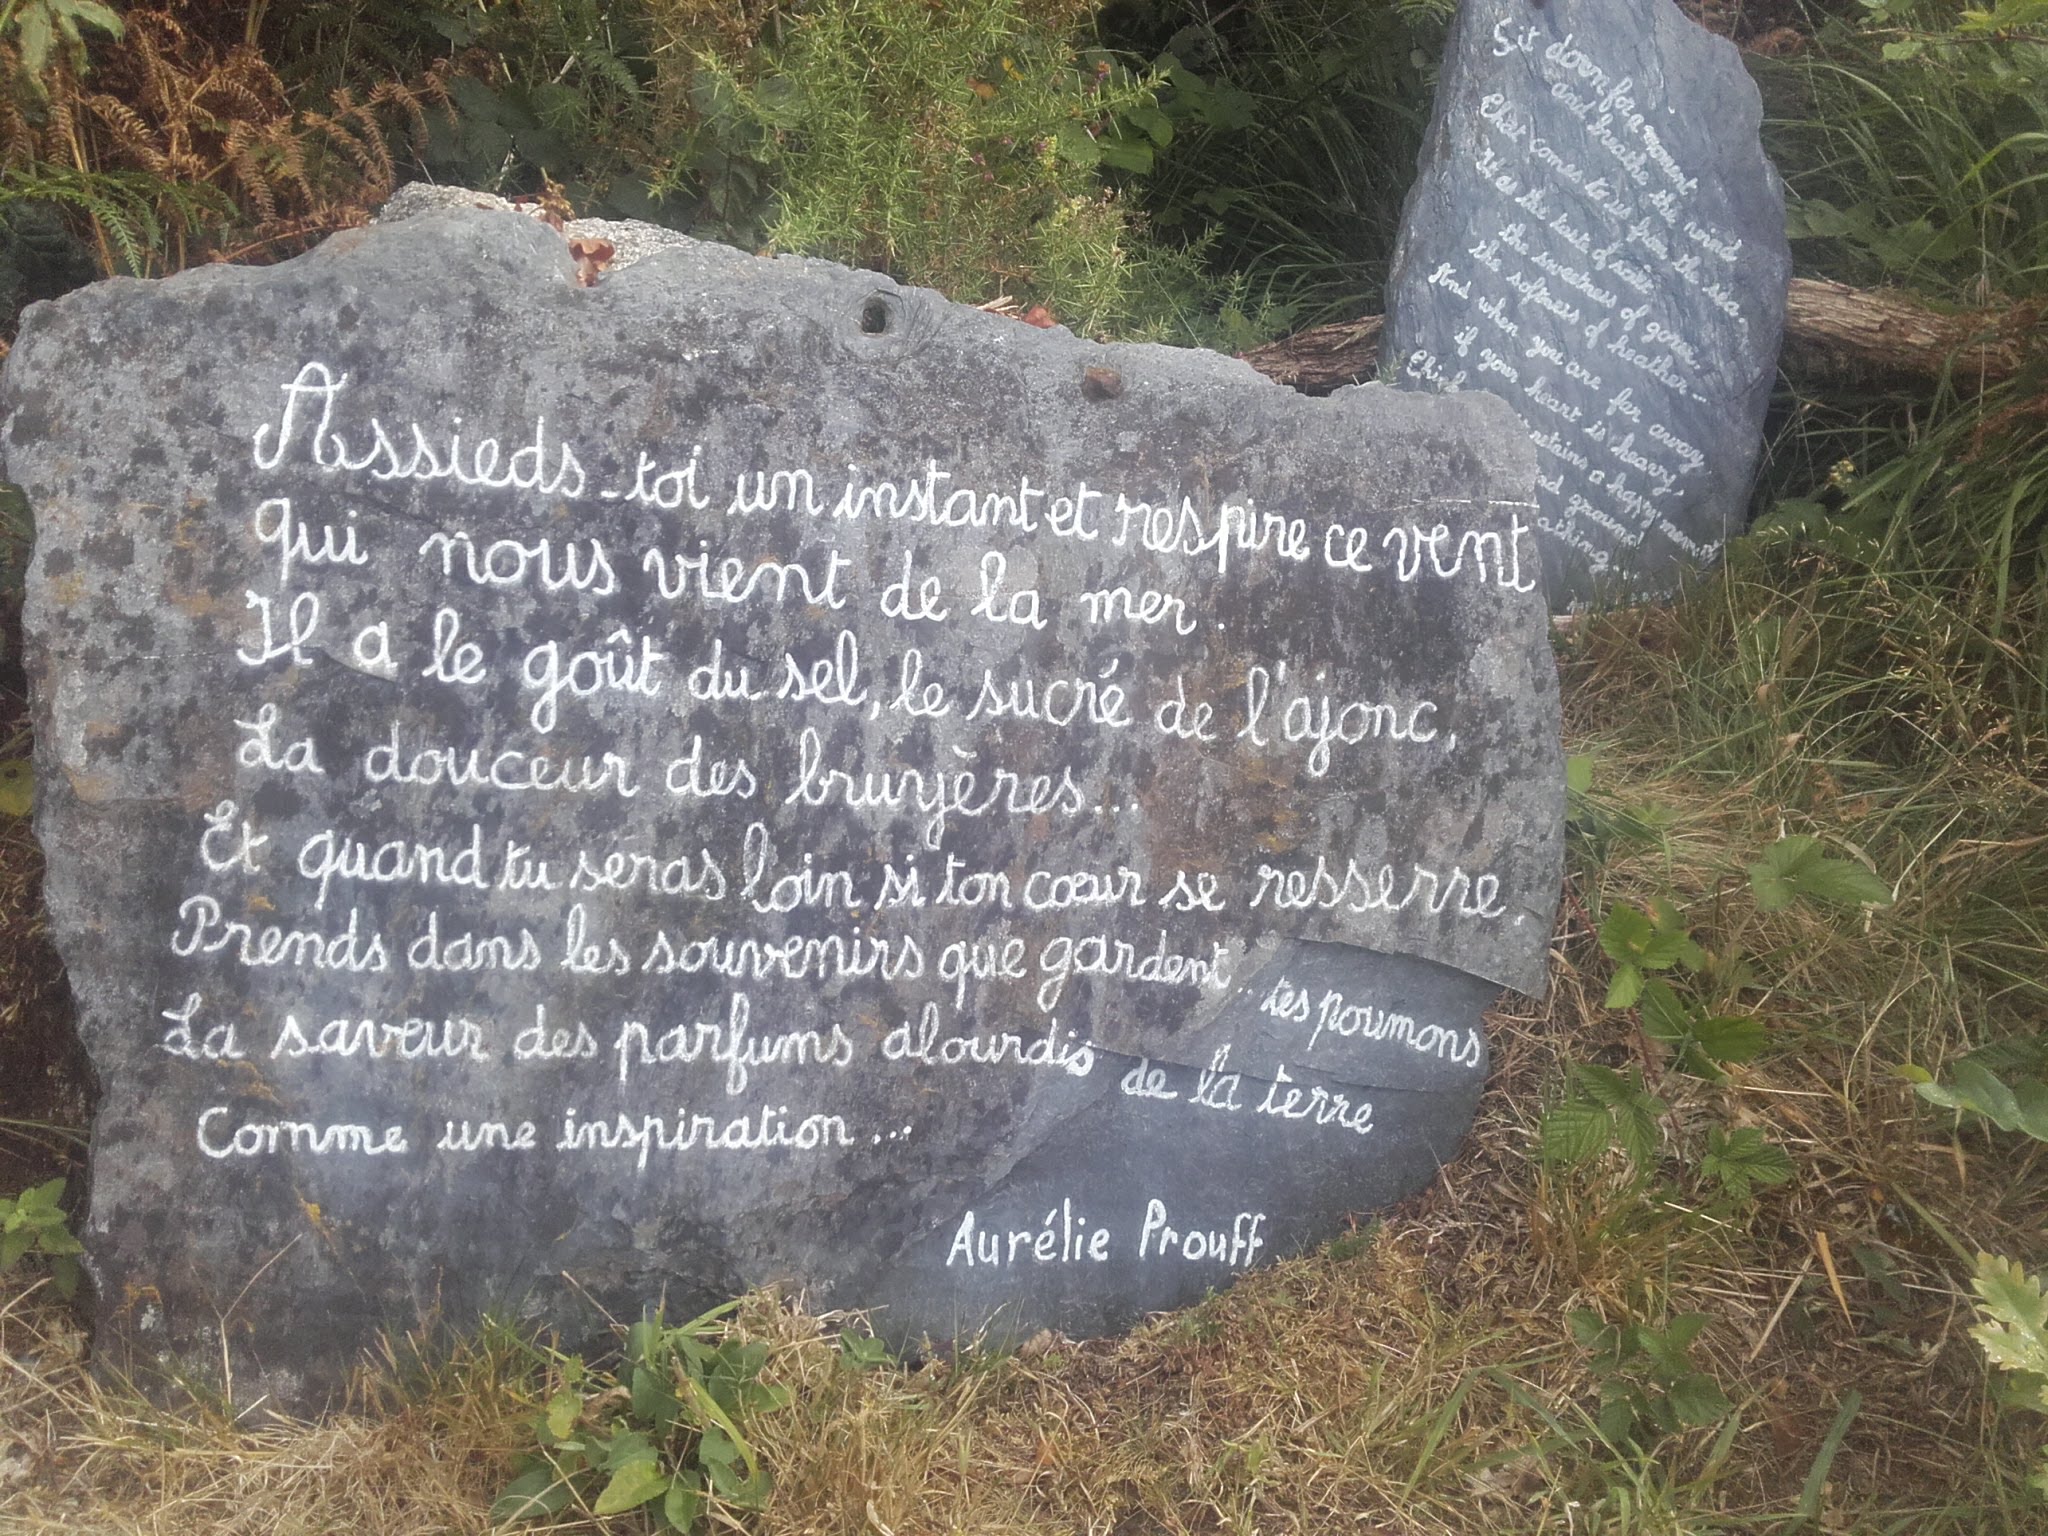 Assieds-toi un instant et respire ce vent
qui nous vient de la mer.
Il a le goût du sel, le sucré de l'ajonc,
La douceur des bruyères...
Et quand tu seras loin si ton cœur se resserre,
Prends dans les souvenirs que gardent.. tes poumons
La saveur des parfums alourdis de la terre
Comme une inspiration...
Aurélie Prouff
Sit down for a moment
and breathe the wind
that comes to us from the sea.
It has the taste of salt,
the sweetness of gorse,
the softness of heather...
And when you are far away,
if your heart is heavy,
retains a happy moment
ground